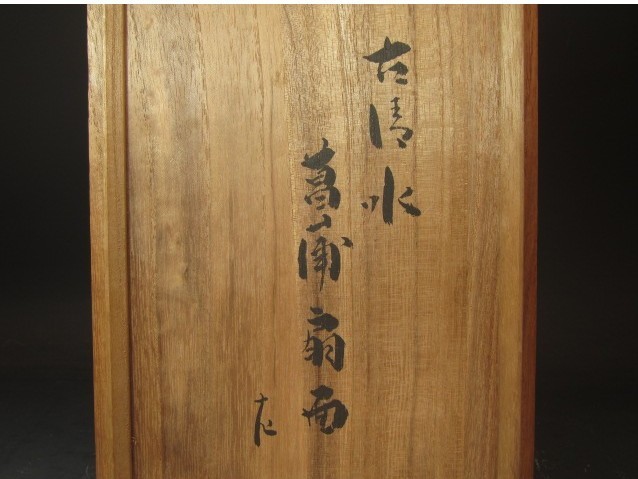 古清水
菖蒲扇面